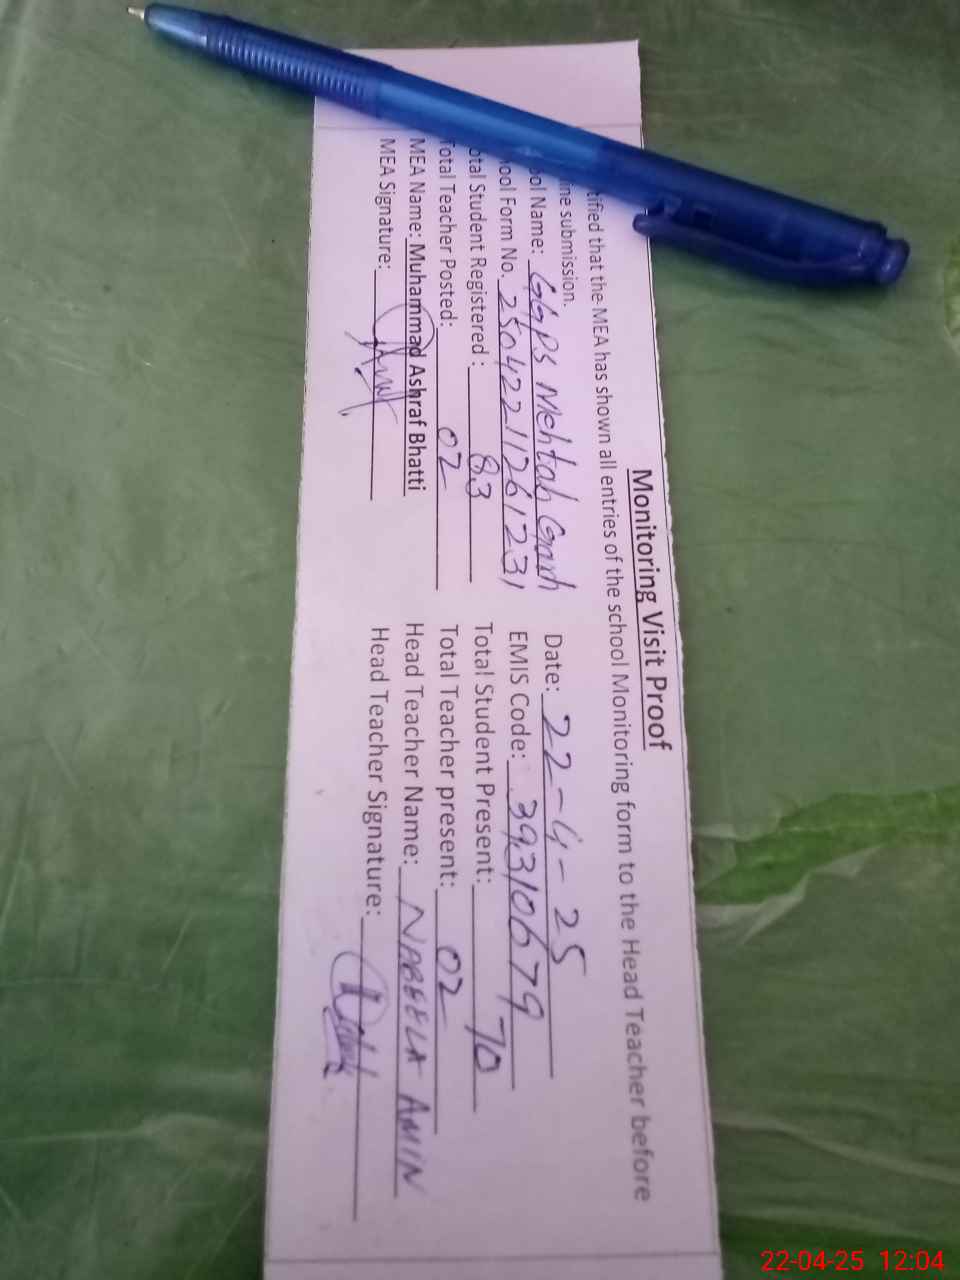 Monitoring Visit Proof
tified that the MEA has shown all entries of the school Monitoring form to the Head Teacher before
ine submission.
ool Name: GGPS Mehtab Garh Date: 22-4-25
ool Form No. 250422112612 31 EMIS Code: 39310679
otal Student Registered : 83 Total Student Present: 70
Total Teacher Posted: 02 Total Teacher present: 02
MEA Name: Muhammad Ashraf Bhatti Head Teacher Name: NABEELA AMIN
MEA Signature: Head Teacher Signature:
22-04-25 12:04